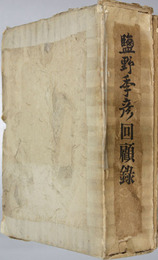 鹽野季彦回顧録